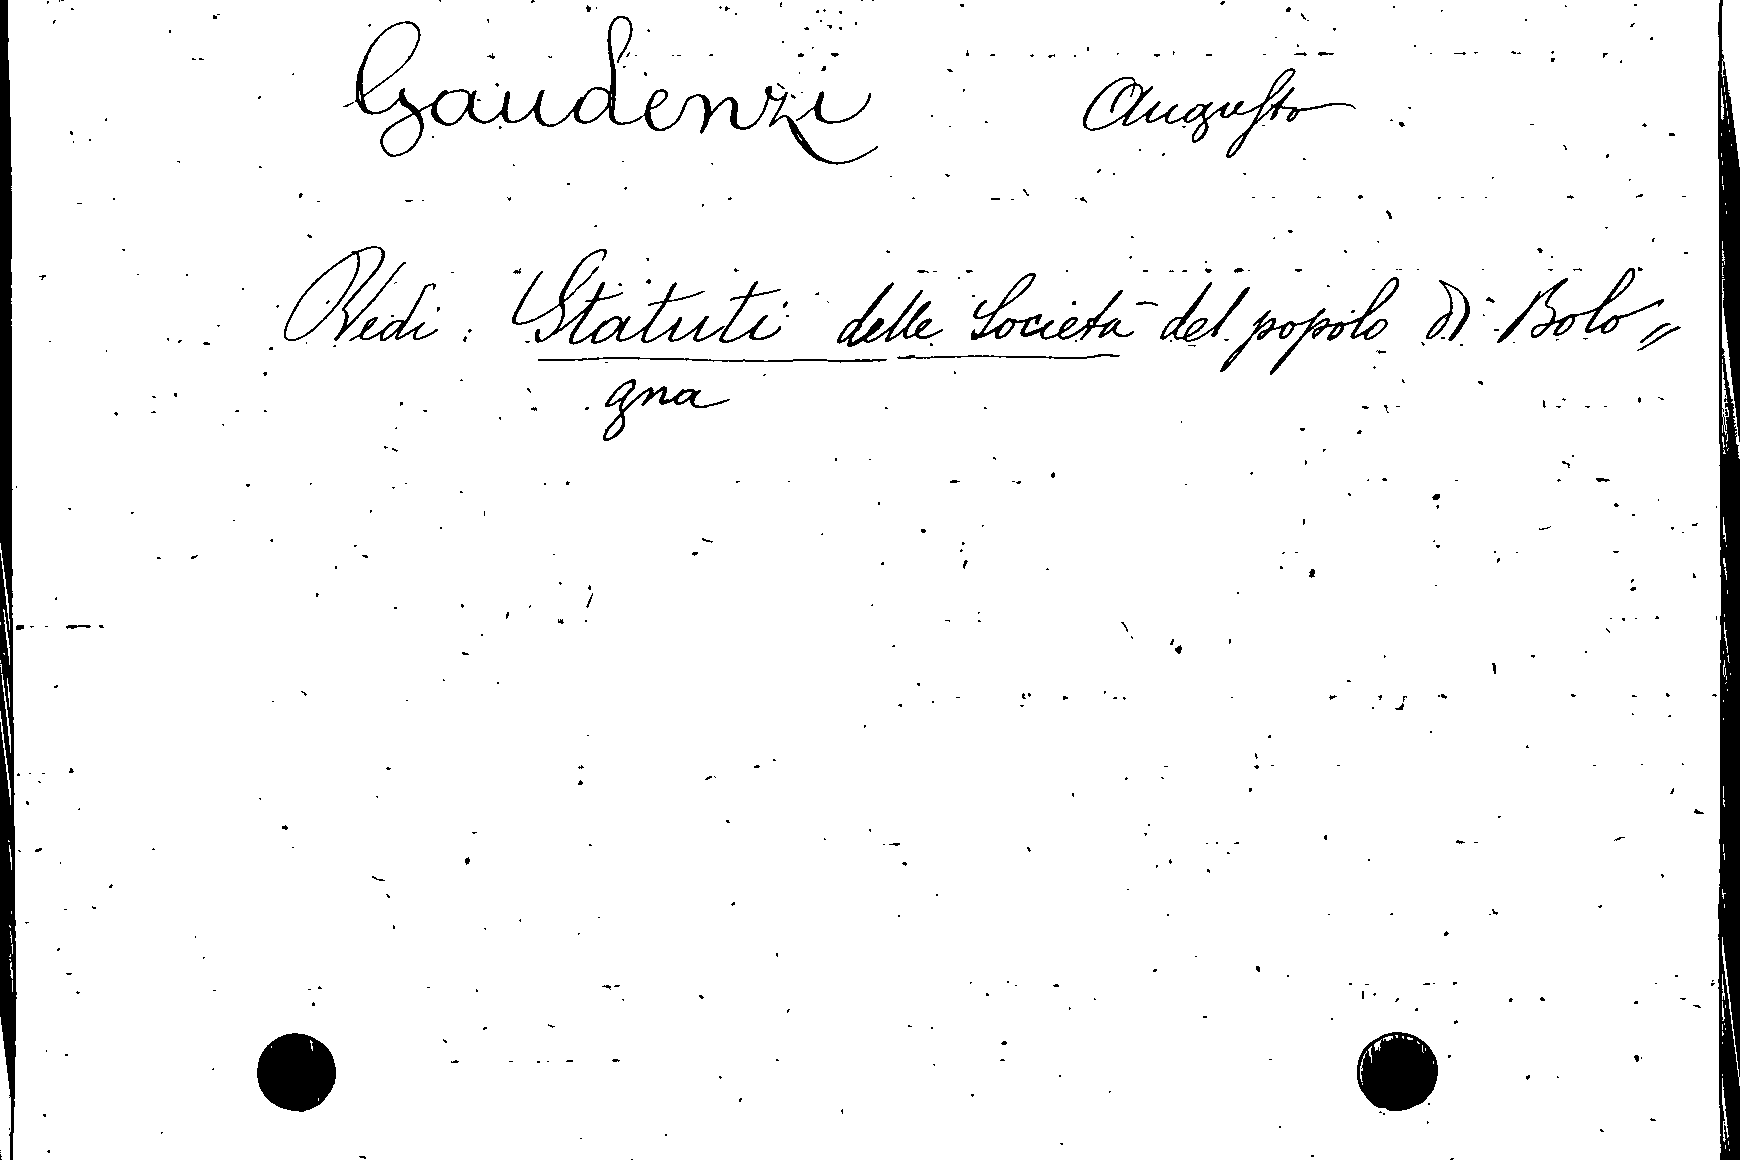 Gaudenzi Augusto
Vedi: Statuti delle Società del popolo di Bolo〃
gna